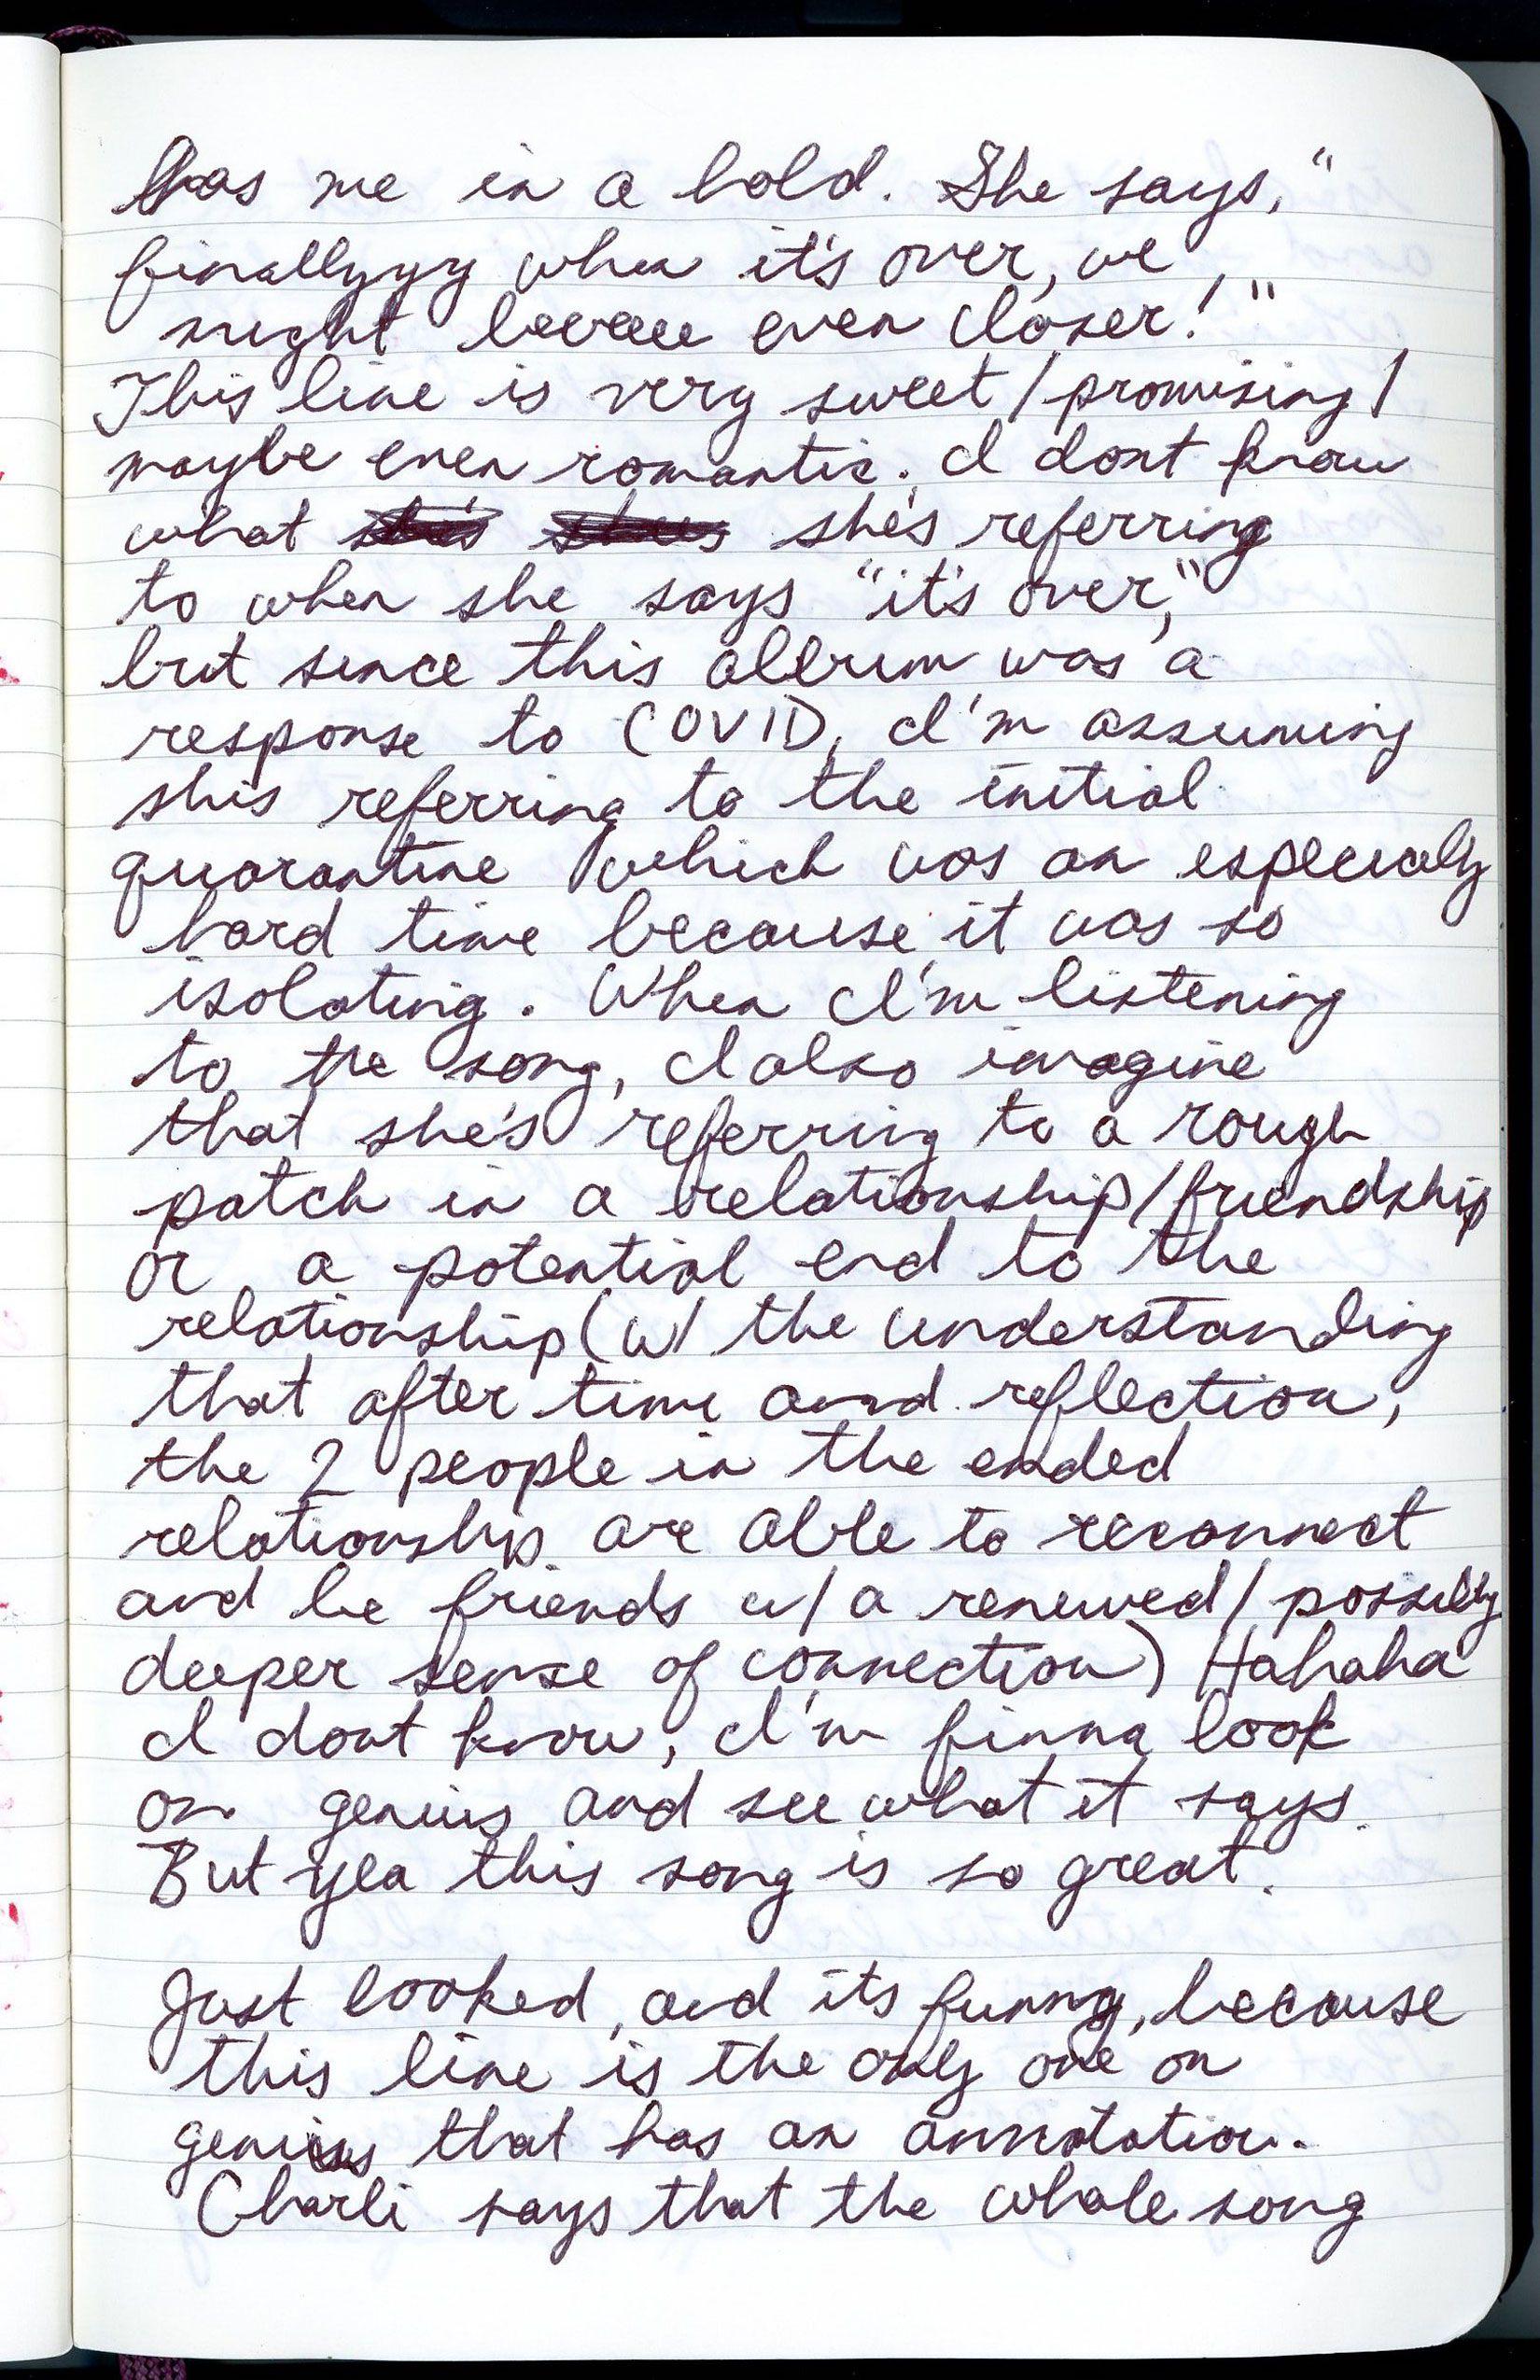 has me in a hold. She says, "
finallyyyy when it's over, we
might beeeee even closer!"
This line is very sweet/promising/
maybe even romantic. I dont know
what she's she's she's referring
to when she says "it's over,"
but since this album was a
response to COVID, I'm assuming
shis referring to the initial
quarantine which was an especially
hard time because it was so
isolating. When I'm listening
to the song, I also imagine
that she's referring to a rough
patch in a relationship/friendship
or a potential end to the
relationship (w/ the understanding
that after time and reflection,
the 2 people in the ended
relationship are able to reconnect
and be friends w/ a renewed/possibly
deeper sense of connection) Hahaha
I dont know, I'm finna look
on genius and see what it says.
But yea this song is so great.
Just looked, and its funny, because
this line is the only one on
genius that has an annotation.
Charli says that the whole song